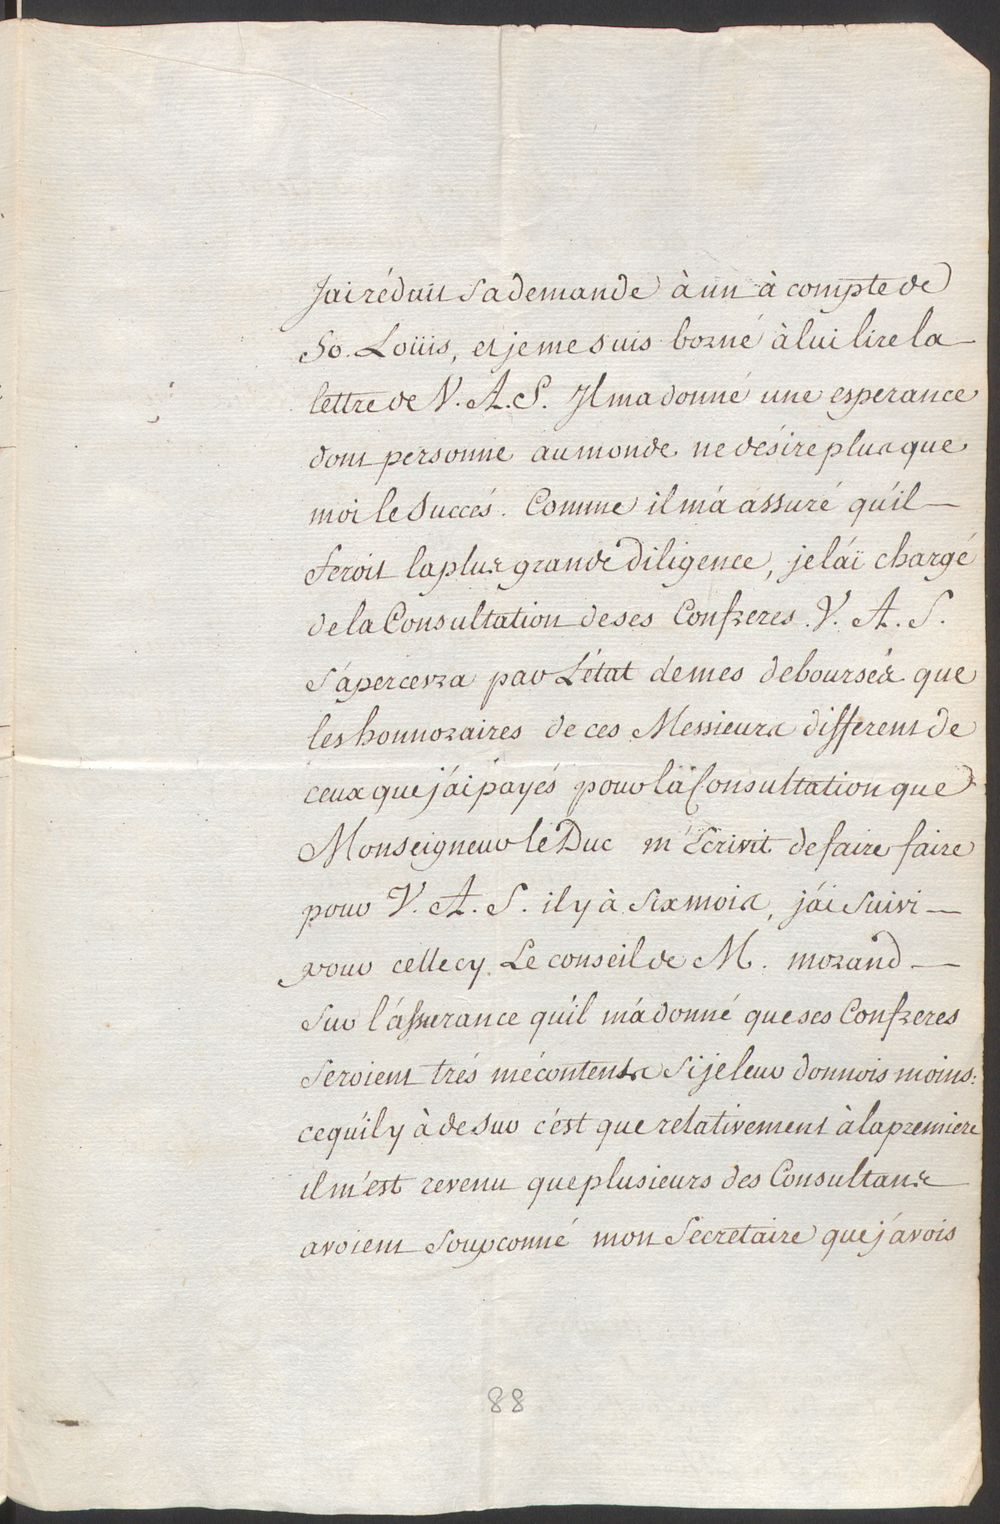 Jai réduit sa demande à un à compte de
50. Loüis, et je me suis borné à lui lire la
lettre de V. A. S. Il ma donné une esperance
dont personne au monde ne désire plus que
moi le succés. Comme il m'a assuré qu'il
feroit la plus grande diligence, je l'ai chargé
de la Consultation de ses Confreres. V. A. S.
s'apercevra par L'état de mes deboursés que
les honnoraires de ces Messieurs different de
ceux que j'ai payés pour la Consultation que
Monseigneur le Duc m'Ecrivit de faire faire
pour V. A. S. il y à six mois, j'ai suivi
pour celle cy. Le conseil de M. morand
sur l'assurance qu'il m'a donné que ses Confreres
seroient trés mécontents si je leur donnois moins:
ce qu'il y à de sur c'est que relativement à la premiere
il m'est revenu que plusieurs des Consultans
avoient soupconné mon Secretaire que j'avois
88